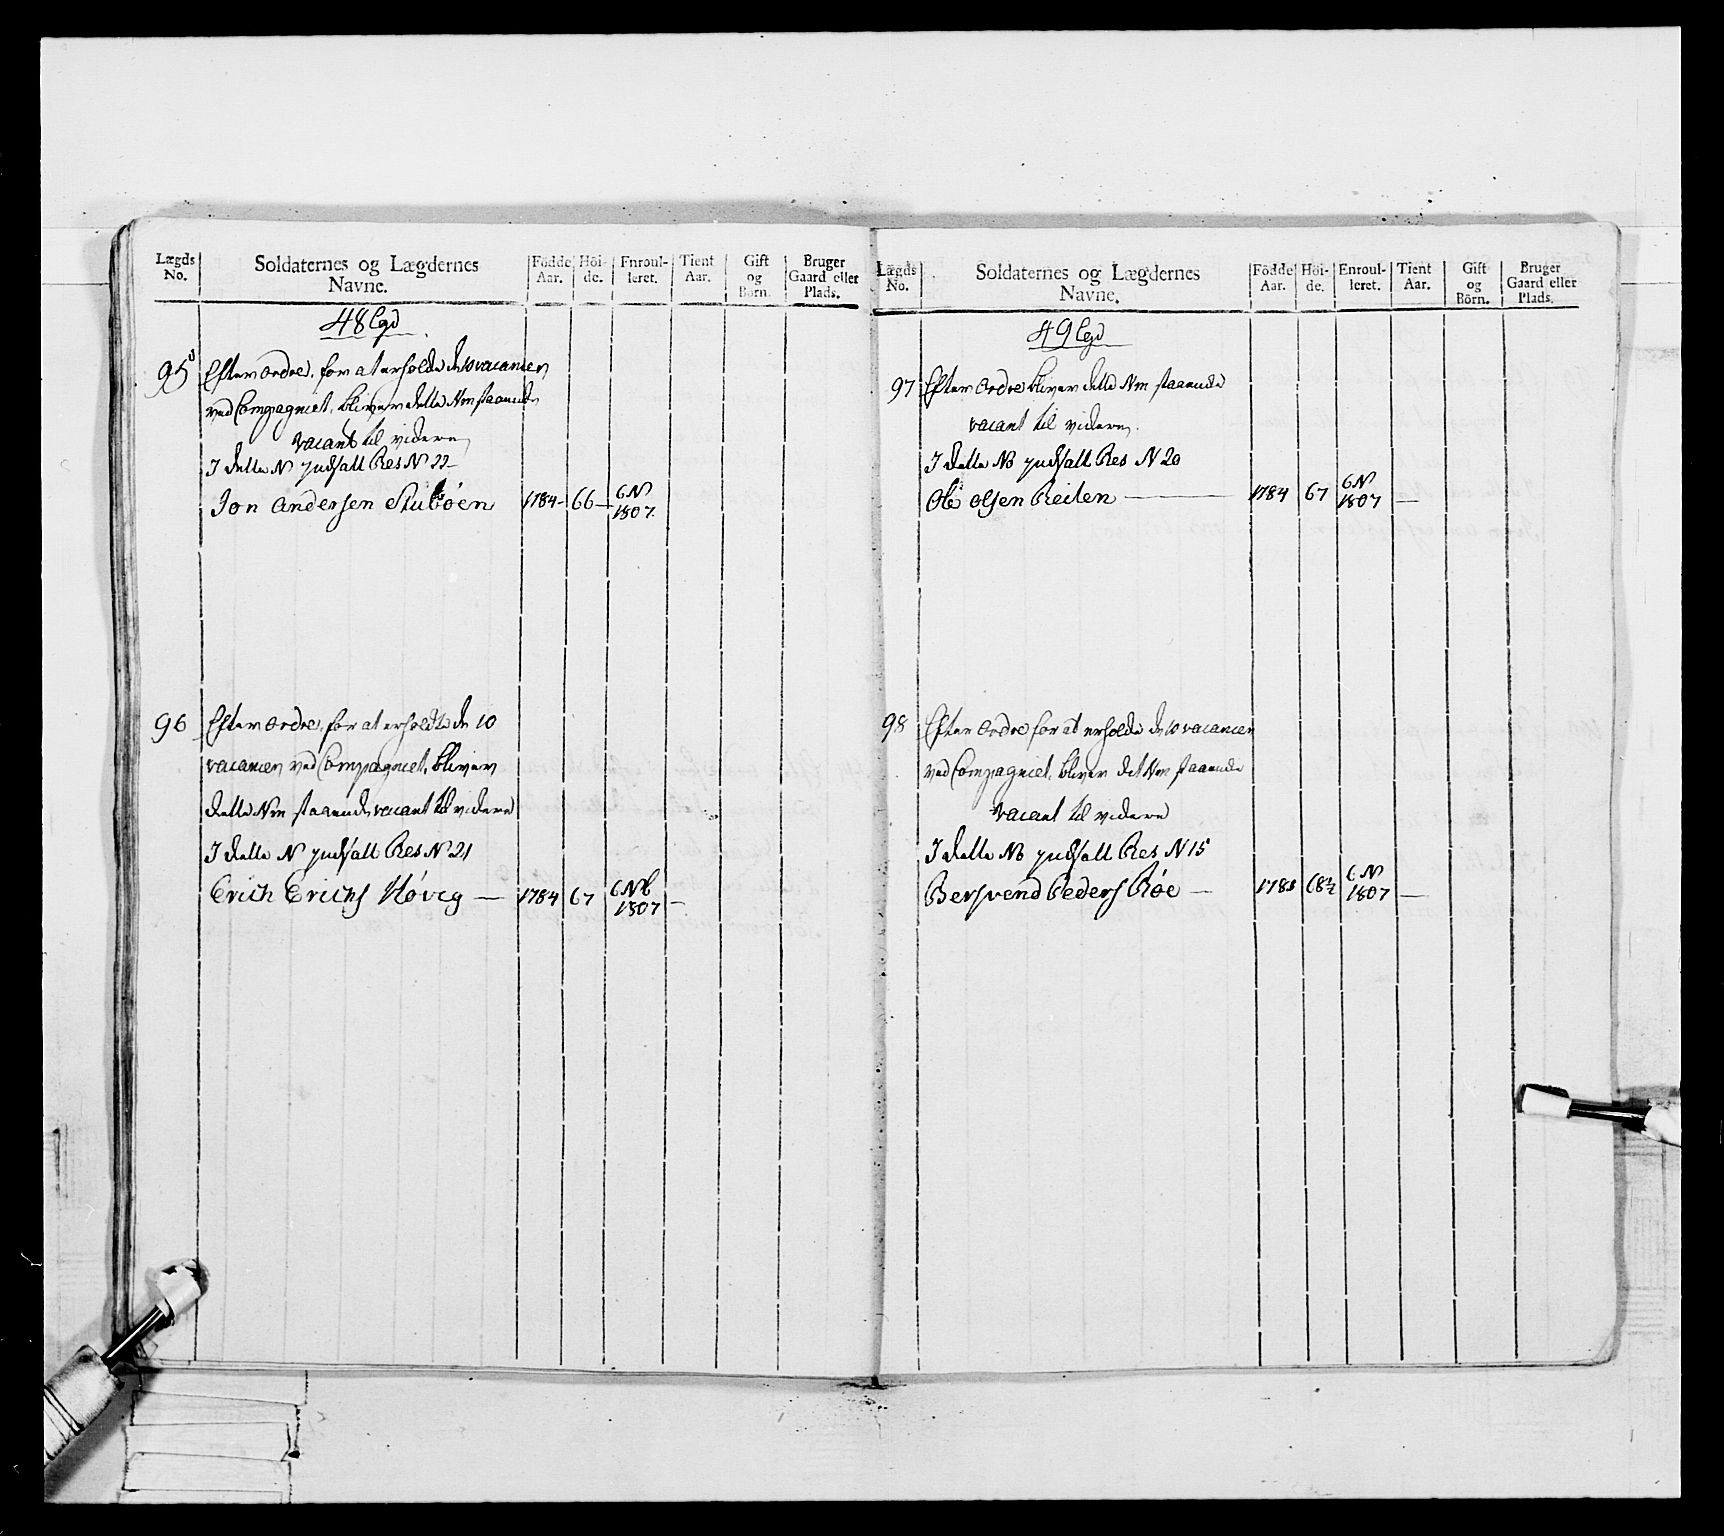 Lægds No. Soldaternes og Lægdernes Navne. Födde Aar. Höi-de. Enroul-leret. Tient Aar. Gift og Börn. Bruger Gaard eller Plads.
48 Lgd
95 Efter ordre, for at erholde de 10 vacancer
ved Compagniet, bliver dette Nm staaende
vacant til videre,
I dette N indsatt Res N 22
Jon Andersen Stuböen 1784 - 66 - 6 N 1807.
96 Efter ordre, for at erholdte de 10
vacancer ved Compagniet, bliver
dette Nm staaende vacant til videre
I dette N indsatt Res N 21
Erich Erichs Høvig — 1784 67 6 Nb 1807 -
Lægds No. Soldaternes og Lægdernes Navne. Födde Aar. Höi-de. Enroul-leret. Tient Aar. Gift og Börn. Bruger Gaard eller Plads.
49 Lgd
97 Efter ordre bliver dette Nm staaende
vacant til videre.
I dette No indsatt Res N 20
Ole Olsen Reiten — 1784 67 6 N 1807 —
98 Efter Ordre for at erholde de 10 vacancer
ved Compagniet, bliver det Nm staaende
vacant til videre
I dette No indsatt Res N 15
Bersvend Peders Röe — 6 N 1807 —